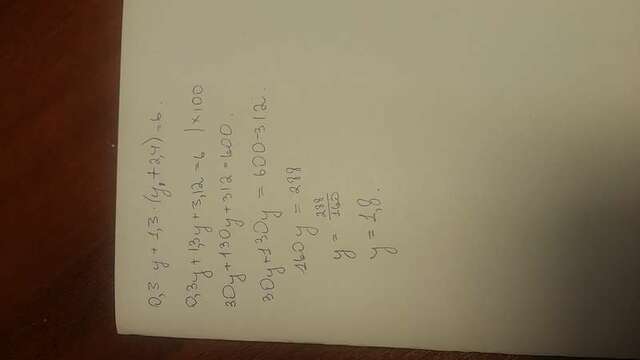 0,3 y + 1,3 · (y + 2,4) = 6.
0,3y + 1,3y + 3,12 = 6 | × 100
30y + 130y + 312 = 600.
30y + 130y = 600 - 312.
160y = 288
y = 288/160
y = 1,8.